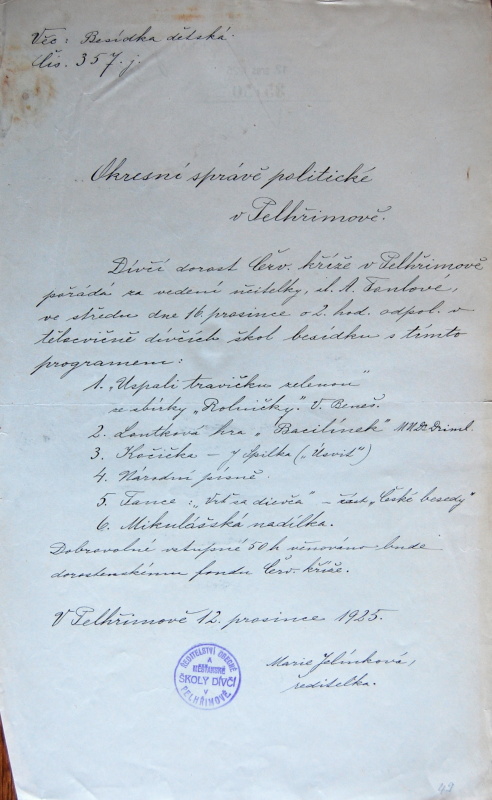 Věc: Besídka dětská.
čís. 357. j.
Okresní správě politické
v Pelhřimově.
Dívčí dorost Červ. kříže v Pelhřimově
pořádá za vedení učitelky, sl. A. Fantové,
ve středu dne 16. prosince o 2. hod. odpol. v
tělocvičně dívčích škol besídku s tímto
programem:
1. "Uspali travičku zelenou"
ze sbírky "Rolničky". V. Beneš.
2. Loutková hra "Bacilínek" MUDr Driml.
3. Kočička – J Spilka ("Úsvit")
4. Národní písně.
5. Tance: – část "České besedy"
6. Mikulášská nadílka.
Dobrovolné vstupné 50 h věnováno bude
dorosteneckému fondu Červ. kříže.
V Pelhřimově 12. prosince 1925.
ŘEDITELSTVÍ OBECNÉ
A
MĚŠŤANSKÉ
ŠKOLY DÍVČÍ
V
PELHŘIMOVĚ.
Marie Jelínková,
ředitelka.
49